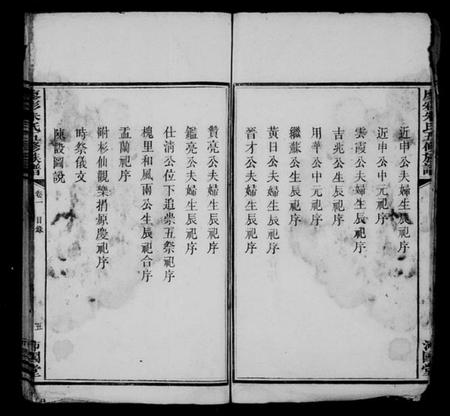 近申公夫婦生辰祀序
近申公中元祀序
雲霞公夫婦生辰祀序
吉兆公生辰祀序
用華公中元祀序
繼蘇公生辰祀序
黃日公夫婦生辰祀序
晉才公夫婦生辰祀序
贊亮公夫婦生辰祀序
鑑亮公夫婦生辰祀序
仕清公位下追崇五祭祀序
槐里和風南公生辰祀合序
盂蘭祀序
附杉仙觀樂捐原慶祀序
時祭儀文
陳設圖說
朱氏五修族譜
卷一
目錄
五
沛國堂